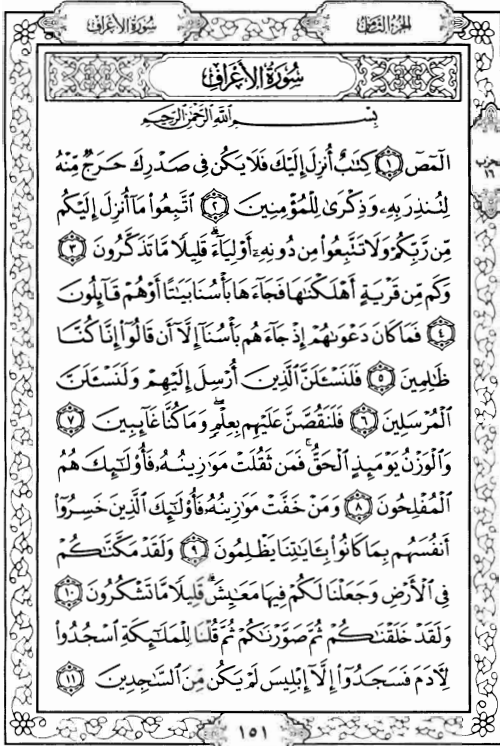 سُورَةُ الأَعْرَافِ
الجُزْءُ الثَّامِنُ
سُورَةُ الأَعْرَافِ
بِسْمِ ٱللَّهِ ٱلرَّحْمَٰنِ ٱلرَّحِيمِ
الٓمٓصٓ ١ كِتَٰبٌ أُنزِلَ إِلَيْكَ فَلَا يَكُن فِي صَدْرِكَ حَرَجٌ مِّنْهُ
لِتُنذِرَ بِهِۦ وَذِكْرَىٰ لِلْمُؤْمِنِينَ ٢ ٱتَّبِعُوا۟ مَآ أُنزِلَ إِلَيْكُم
مِّن رَّبِّكُمْ وَلَا تَتَّبِعُوا۟ مِن دُونِهِۦٓ أَوْلِيَآءَ ۗ قَلِيلًا مَّا تَذَكَّرُونَ ٣
وَكَم مِّن قَرْيَةٍ أَهْلَكْنَٰهَا فَجَآءَهَا بَأْسُنَا بَيَٰتًا أَوْ هُمْ قَآئِلُونَ
٤ فَمَا كَانَ دَعْوَىٰهُمْ إِذْ جَآءَهُم بَأْسُنَآ إِلَّآ أَن قَالُوٓا۟ إِنَّا كُنَّا
ظَٰلِمِينَ ٥ فَلَنَسْـَٔلَنَّ ٱلَّذِينَ أُرْسِلَ إِلَيْهِمْ وَلَنَسْـَٔلَنَّ
ٱلْمُرْسَلِينَ ٦ فَلَنَقُصَّنَّ عَلَيْهِم بِعِلْمٍ ۖ وَمَا كُنَّا غَآئِبِينَ ٧
وَٱلْوَزْنُ يَوْمَئِذٍ ٱلْحَقُّ ۚ فَمَن ثَقُلَتْ مَوَٰزِينُهُۥ فَأُو۟لَٰٓئِكَ هُمُ
ٱلْمُفْلِحُونَ ٨ وَمَنْ خَفَّتْ مَوَٰزِينُهُۥ فَأُو۟لَٰٓئِكَ ٱلَّذِينَ خَسِرُوٓا۟
أَنفُسَهُم بِمَا كَانُوا۟ بِـَٔايَٰتِنَا يَظْلِمُونَ ٩ وَلَقَدْ مَكَّنَّٰكُمْ
فِي ٱلْأَرْضِ وَجَعَلْنَا لَكُمْ فِيهَا مَعَٰيِشَ ۗ قَلِيلًا مَّا تَشْكُرُونَ ١٠
وَلَقَدْ خَلَقْنَٰكُمْ ثُمَّ صَوَّرْنَٰكُمْ ثُمَّ قُلْنَا لِلْمَلَٰٓئِكَةِ ٱسْجُدُوا۟
لِـَٔادَمَ فَسَجَدُوٓا۟ إِلَّآ إِبْلِيسَ لَمْ يَكُن مِّنَ ٱلسَّٰجِدِينَ ١١
حزب
١٦
١٥١